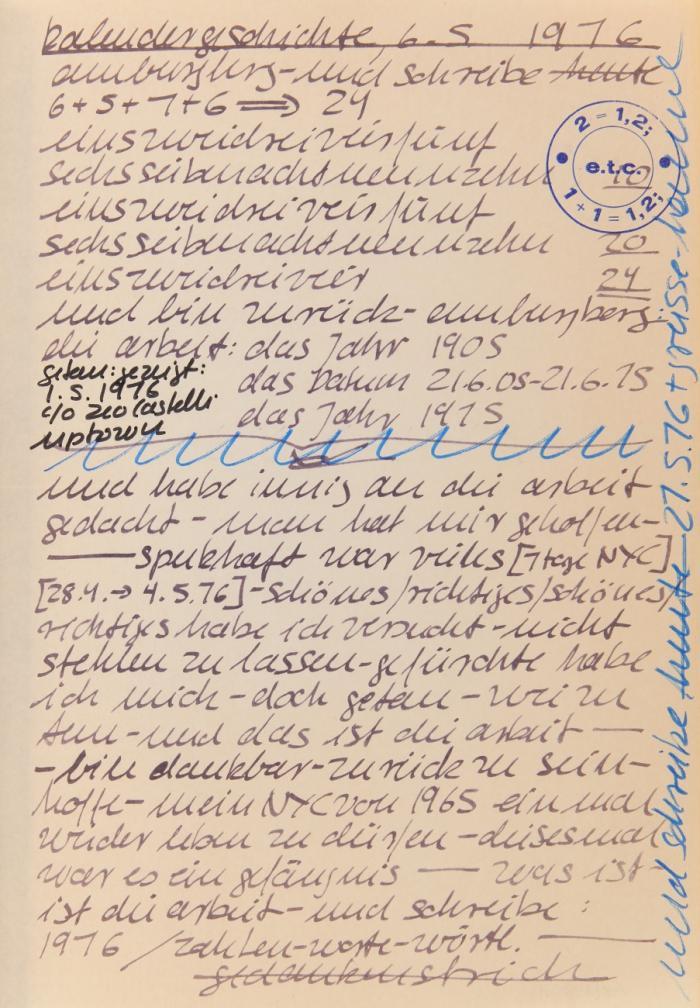 kalendergeschichte, 6.5 1976
amburgberg-und schreibe heute
6+5+7+6 ⟹ 24
einszweidreivierfünf
sechssiebenachtneunundzehn 10
einszweidreivierfünf
sechssiebenachtneunundzehn 20
einszweidreivier 24
und bin zurück- amburgberg:
die arbeit: das Jahr 1905
das Datum 21.6.05-21.6.75
das Jahr 1975
getan: gezeigt:
1.5.1976
c/o Leo Castelli
uptown
und habe innig an die arbeit
gedacht - man hat mir geholfen-
spukhaft war vieles [7 tage NYC]
[28.4.→ 4.5.76]-schönes/richtiges/schönes/
richtiges habe ich versucht-nicht
stehlen zu lassen-gefürchte habe
ich mich-doch getan-weiter
tun-und das ist die arbeit —
-bin dankbar-zurück zu sein-
hoffe-mein NYC von 1965 einmal
wieder leben zu dürfen-diesesmal
war es ein gefängnis — was ist-
ist die arbeit-und schreibe:
1976 /zahlen-worte-wörtl. —
gedankenstrich
2 = 1,2;
e.t.c.
1 + 1 = 1,2;
und schreibe heute-27.5.76+grüsse-hanne